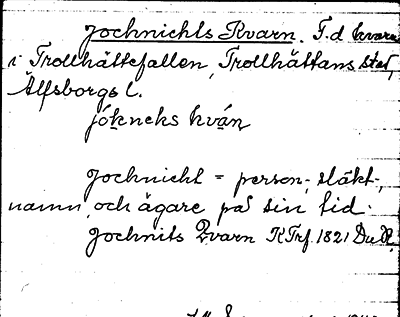 Jochnichls Kvarn. F.d kvarn
i Trollhättefallen, Trollhättans stad,
Älfsborgs l.
jókneks kván
Jochnichl = person-, släkt-,
namn, och ägare på sin tid.
Jochnits Qvarn KTrf. 1821 Du R.